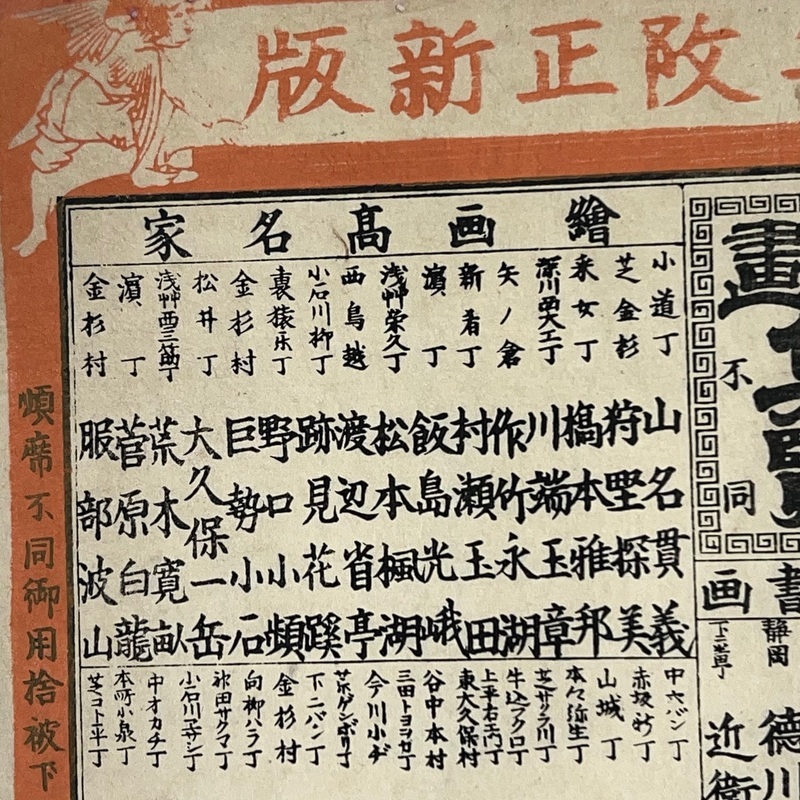 改正新版
繪画高名家
小道丁 山名貫義
芝金杉 狩野探美
采女丁 橋本雅邦
深川西大工丁 川端玉章
矢ノ倉 作竹永湖
新肴丁 村瀬玉田
濵丁 飯島光峨
浅艸栄久丁 松本楓湖
西鳥越 渡辺省亭
小石川柳丁 跡見花蹊
裏猿楽丁 野口小蘋
金杉村 巨勢小石
松井丁 大久保一岳
浅艸西三筋丁 荒木寛畝
濵丁 菅原白龍
金杉村 服部波山
中六バン丁
赤坂新丁
山城丁
本々弥生丁
芝サクラ川丁
牛込フクロ丁
上平右エ門丁
東大久保村
谷中本村
三田トヨヲカ丁
今川小ヂ
下二バン丁
金杉村
向柳ハラ丁
神田サクマ丁
小石川
中オカチ丁
本所小泉丁
芝コト平丁
畫
不同
書画
静岡 徳川
近衛
順席不同御用捨被下